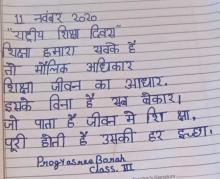 11 नवंबर 2020
"राष्ट्रीय शिक्षा दिवस"
शिक्षा हमारा सबके है
तो मौलिक अधिकार
शिक्षा जीवन का आधार.
इसके विना है सब बेकार।
जो पाता है जीवन मे शि क्षा,
पूरी होती है उसकी हर इच्छा।
Prograsnee Borah
Class. III